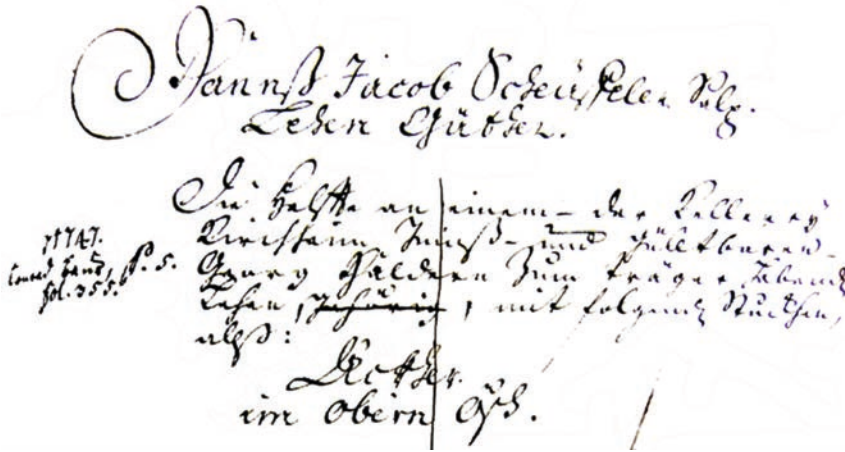 Hannß Jacob Scheuffelen Salz.
Lehen Güther.
Die Helffte an einem - der Kellerey
Kirchheim Zinnß- und Gülltbaren -
Georg Häldern zum träger habend
Lehen, gehörig, mit folgend Stuckhen,
alß:
1747.
Conrad
fol. 355.
P. 5.
Äckher
im obern Ösch.